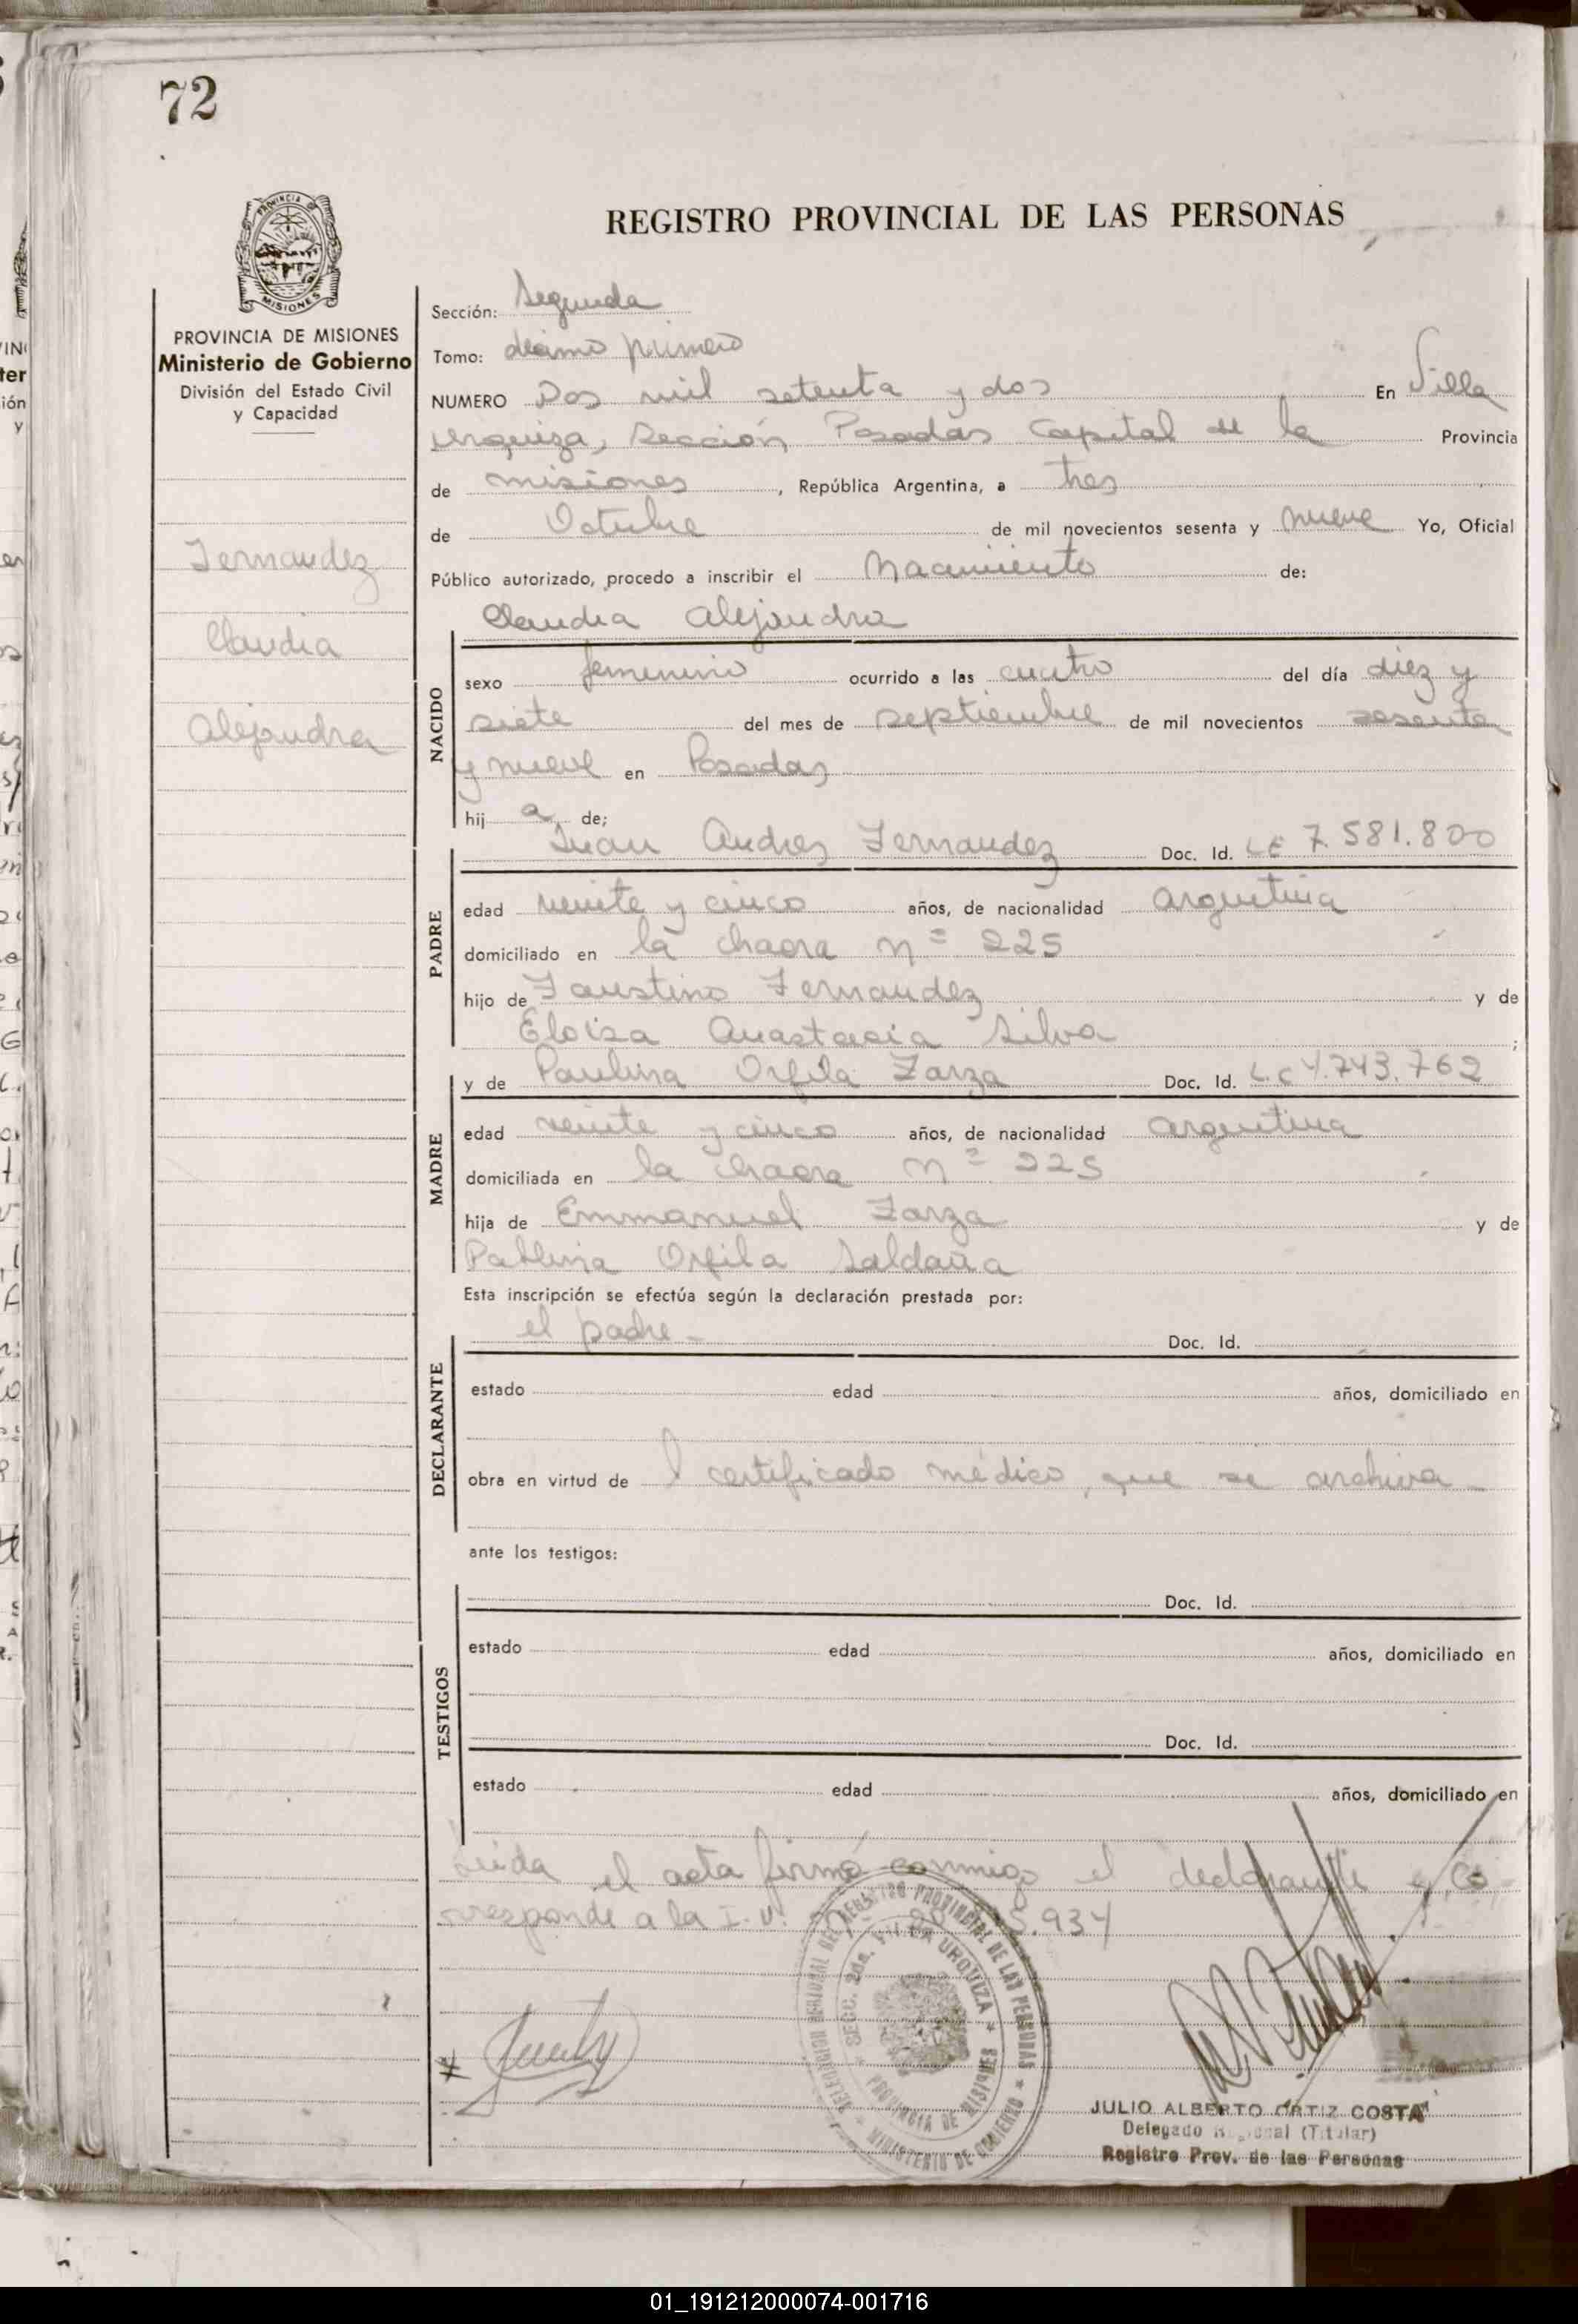 72
PROVINCIA DE
MISIONES
PROVINCIA DE MISIONES
Ministerio de Gobierno
División del Estado Civil
y Capacidad
Fernandez
Claudia
Alejandra
REGISTRO PROVINCIAL DE LAS PERSONAS
Sección: Segunda
Tomo: décimo primero
NUMERO Dos mil setenta y dos En Villa
Urquiza, Sección Posadas Capital de la Provincia
de misiones, República Argentina, a tres
de Octubre de mil novecientos sesenta y nueve Yo, Oficial
Público autorizado, procedo a inscribir el Nacimiento de:
Claudia Alejandra
NACIDO
sexo femenino ocurrido a las cuatro del día diez y
siete del mes de septiembre de mil novecientos sesenta
y nueve en Posadas
hij a de;
Juan Andres Fernandez Doc. Id. L E 7.581.800
PADRE
edad veinte y cinco años, de nacionalidad argentina
domiciliado en la chacra nº 225
hijo de Faustino Fernandez y de
Eloisa Anastacia Silva ;
y de Paulina Orfila Zarza Doc. Id. L.C 4.743.762
MADRE
edad veinte y cinco años, de nacionalidad argentina
domiciliada en la chacra nº 225
hija de Emmanuel Zarza y de
Orfila Saldaña
Esta inscripción se efectúa según la declaración prestada por:
el padre - Doc. Id.
DECLARANTE
estado edad años, domiciliado en
obra en virtud de certificado médico, que se archiva -
ante los testigos:
Doc. Id.
TESTIGOS
estado edad años, domiciliado en
Doc. Id.
estado edad años, domiciliado en
Leída el acta firmó conmigo el declarante y Co-
rresponde a la I. U. .934
DELEGACION REGIONAL DEL REGISTRO PROVINCIAL DE LAS PERSONAS * MINISTERIO DE GOBIERNO *
SECC. 2da. VILLA URQUIZA * PROVINCIA DE MISIONES
JULIO ALBERTO ORTIZ COSTA
Delegado Regional (Titular)
Registro Prov. de las Personas
01_191212000074-001716